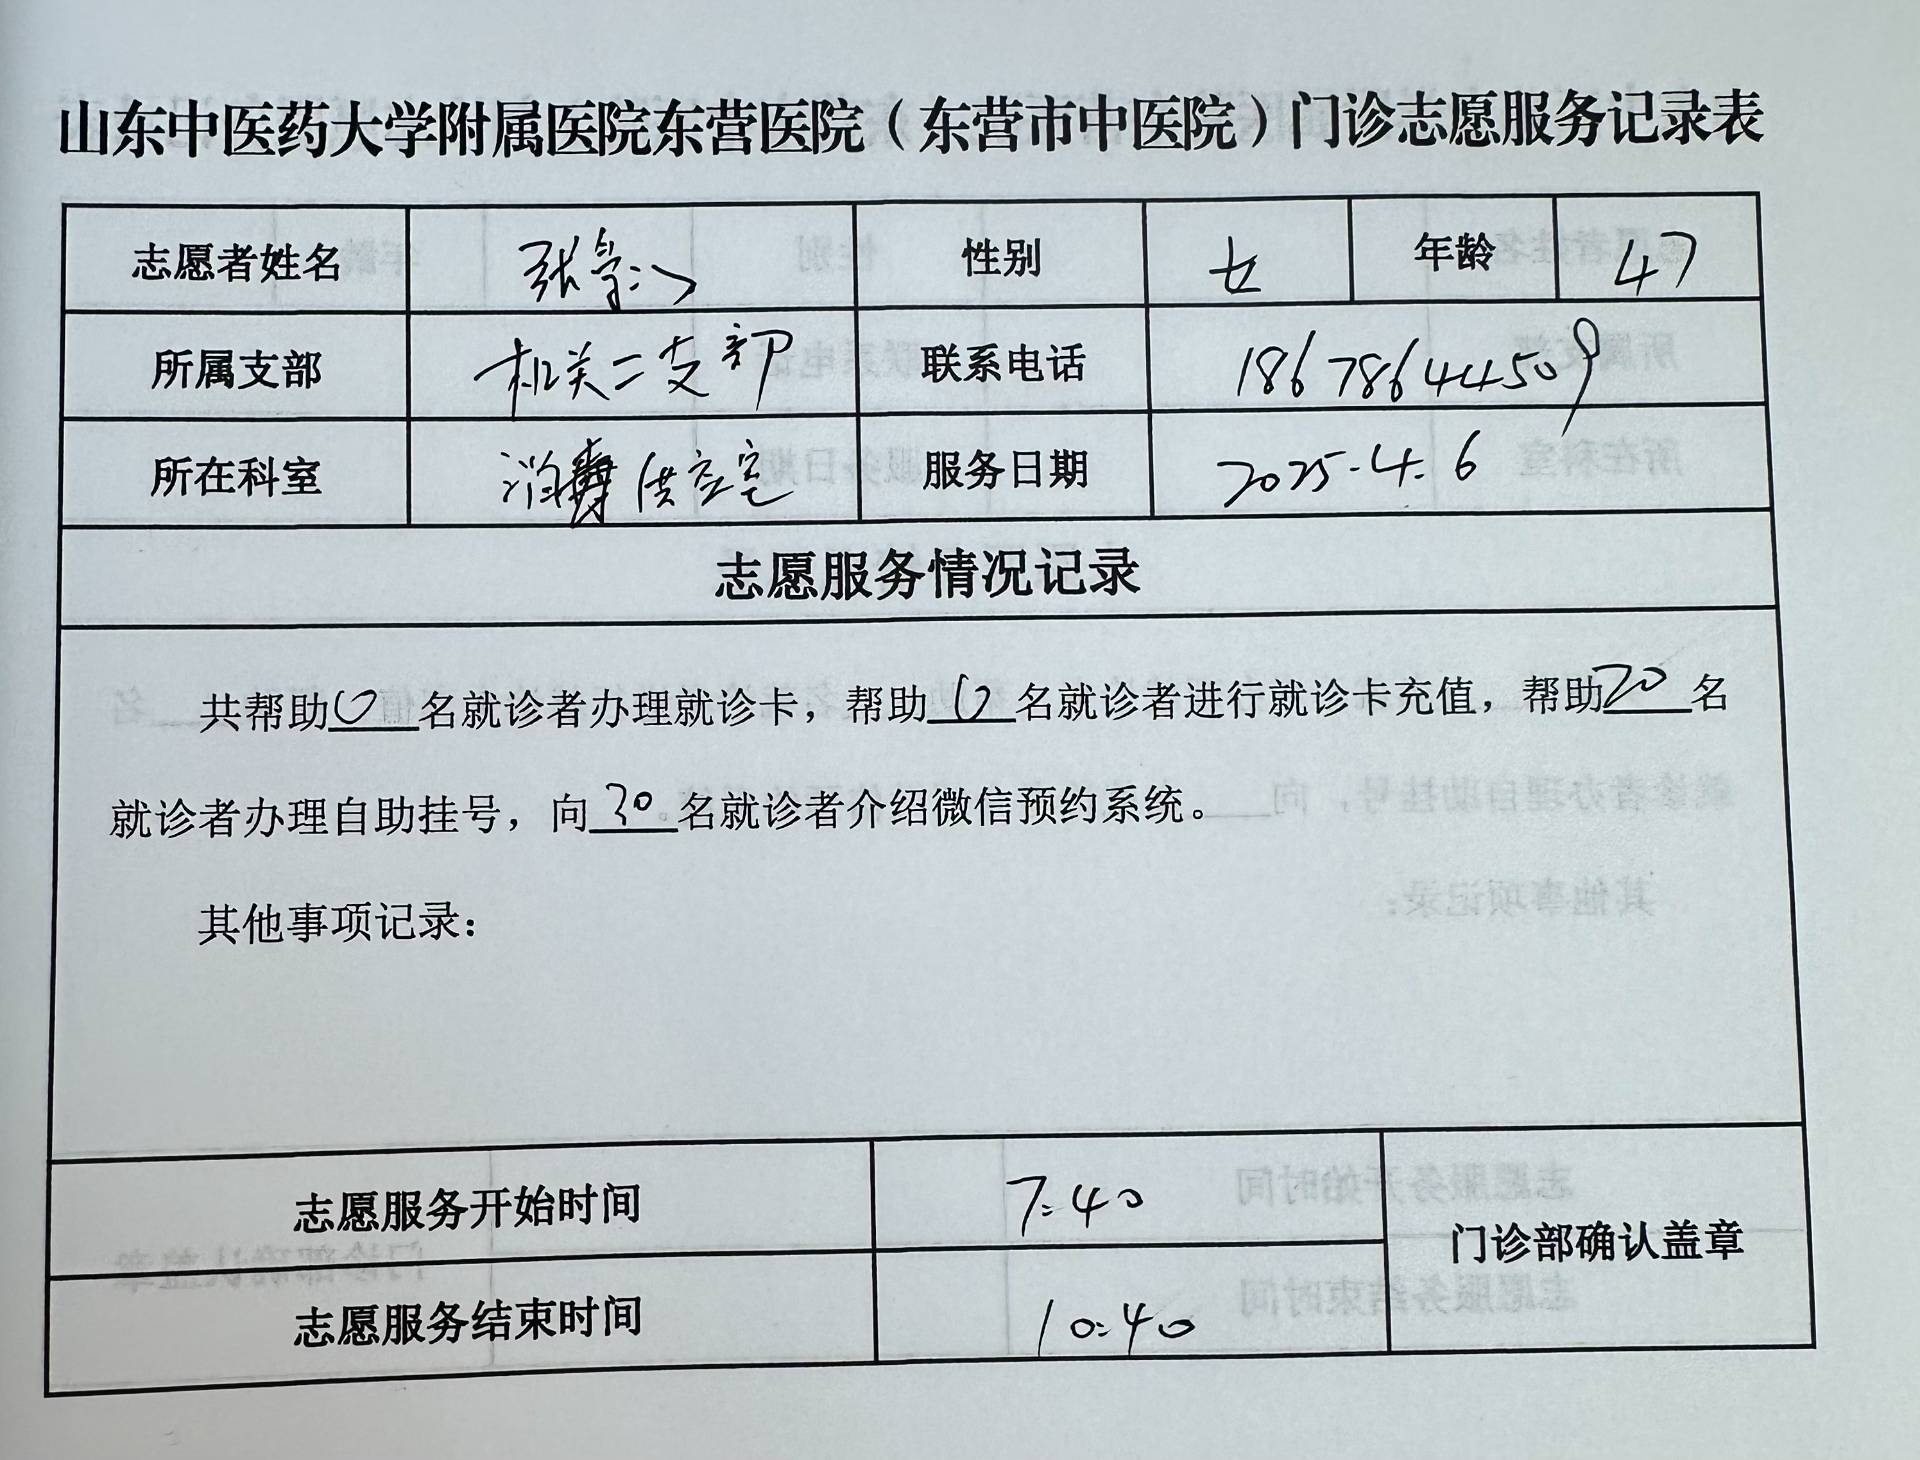 山东中医药大学附属医院东营医院（东营市中医院）门诊志愿服务记录表
志愿者姓名 张 性别 女 年龄 47
所属支部 机关二支部 联系电话 18678644509
所在科室 消毒供应室 服务日期 2025.4.6
志愿服务情况记录
共帮助10名就诊者办理就诊卡，帮助10名就诊者进行就诊卡充值，帮助20名
就诊者办理自助挂号，向30名就诊者介绍微信预约系统。
其他事项记录：
志愿服务开始时间 7:40
门诊部确认盖章
志愿服务结束时间 10:40